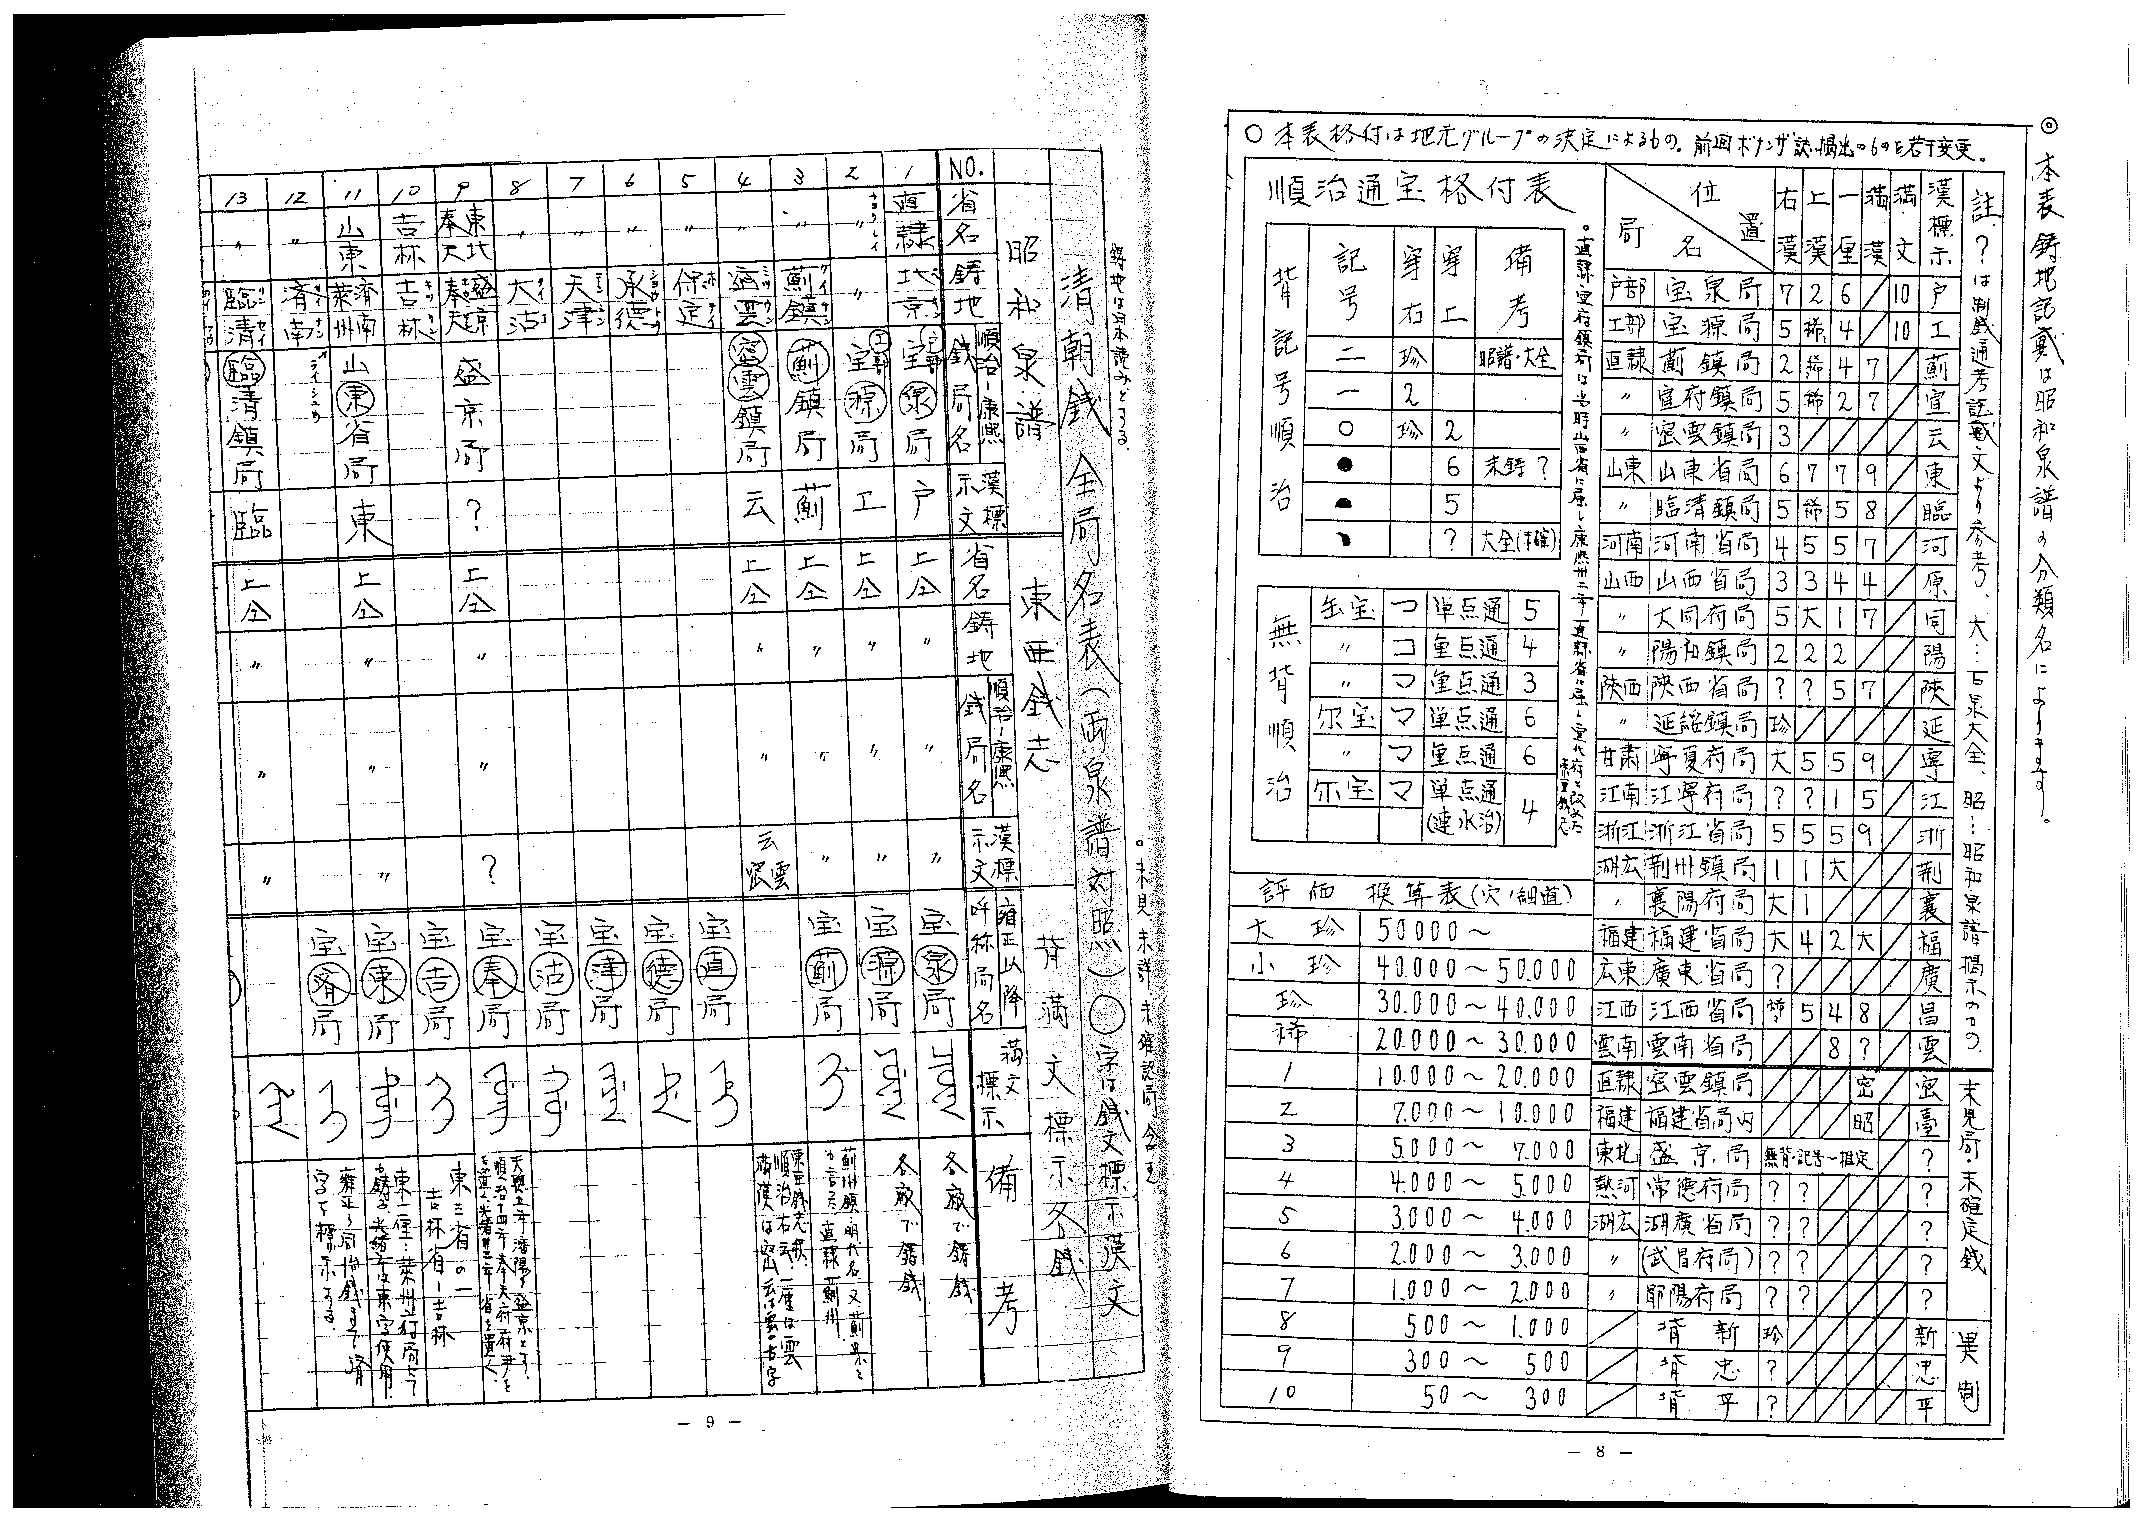 ◎ 本表鋳地記載は昭和泉譜の分類名によります。
○ 本表格付は地元グループの決定によるもの。前回ボナンザ誌掲出のものを若干変更。
註.?は制銭通考記載文より参考、大…古泉大全、昭…昭和泉譜掲示のもの
順治通宝格付表
背記号順治
記号 穿右 穿上 備考
二 珍 昭譜・大全
一 2
○ 珍 2
● 6 未鋳?
5
? 大全(不確)
無背順治
缶宝 コ 単点通 5
〃 コ 重点通 4
〃 マ 重点通 3
尔宝 マ 単点通 6
〃 マ 重点通 6
尔宝 マ 単点通(連水治) 4
評価 換算表(穴ノ細道)
大珍 50000~
小珍 40.000~50.000
珍 30.000~40.000
稀 20.000~30.000
1 10.000~20.000
2 7.000~10.000
3 5.000~7.000
4 4.000~5.000
5 3.000~4.000
6 2.000~3.000
7 1.000~2.000
8 500~1.000
9 300~500
10 50~300
局名 位置 右漢 上漢 一厘 満漢 満文 漢標示
戸部 宝泉局 7 2 6 / 10 戸
工部 宝源局 5 稀 4 / 10 工
直隷 薊鎮局 2 稀 4 7 / 薊
〃 宣府鎮局 5 稀 2 7 / 宣
〃 密雲鎮局 3 / / / / 云
山東 山東省局 6 7 7 9 / 東
〃 臨清鎮局 5 稀 5 8 / 臨
河南 河南省局 4 5 5 7 / 河
山西 山西省局 3 3 4 4 / 原
〃 大同府局 5 大 1 7 / 同
〃 陽和鎮局 2 2 2 / / 陽
陝西 陝西省局 ? ? 5 7 / 陝
〃 延綏鎮局 珍 / / / / 延
甘粛 寧夏府局 大 5 5 9 / 寧
江南 江寧府局 ? ? 1 5 / 江
浙江 浙江省局 5 5 5 9 / 浙
湖広 荊州鎮局 1 1 大 / / 荊
〃 襄陽府局 大 1 / / / 襄
福建 福建省局 大 4 2 大 / 福
広東 廣東省局 ? / / / / 廣
江西 江西省局 稀 5 4 8 / 昌
雲南 雲南省局 / / 8 ? / 雲
未見局・未確定銭
直隷 密雲鎮局 / / / 密 / 密
福建 福建省局内 / / / 昭 / 臺
東北 盛京局 無背・記号~推定 / ?
熱河 常徳府局 ? ? / / / ?
湖広 湖廣省局 ? ? / / / ?
〃 (武昌府局) ? ? / / / ?
〃 鄖陽府局 ? ? / / / ?
異制
/ 背新 珍 / / / / 新
/ 背忠 ? / / / / 忠
/ 背平 ? / / / / 平
- 8 -
鋳地は日本読みとする。
◦未見未詳未確認局含む
清朝銭全局名表(両泉譜対照)○字は銭文標示漢文
昭和泉譜
東亜銭志
背満文標示各銭
備考
NO. 省名 鋳地 順治~康熙銭局名 漢標示文 省名 鋳地 順治~康熙銭局名 漢標示文 雍正以降呼称局名 満文標示
1 直隷 北京 宝泉局 戸 上仝 〃 〃 〃 宝泉局 各廠で鋳銭
2 〃 〃 工部 宝源局 工 上仝 〃 〃 〃 宝源局 各廠で鋳銭
3 〃 薊鎮 薊鎮局 薊 上仝 〃 〃 〃 宝薊局
4 〃 密雲 密雲鎮局 云 上仝 〃 〃 云 密雲
5 〃 保定 宝直局
6 〃 承徳 宝徳局
7 〃 天津 宝津局
8 〃 大沽 宝沽局
9 東北 奉天 盛京 奉天 盛京局 ? 上仝 〃 〃 ? 宝奉局
10 吉林 吉林 宝吉局 東三省の一 吉林省-吉林
11 山東 済南 萊州 山東省局 東 上仝 〃 〃 〃 宝東局
12 〃 済南 宝済局
13 〃 臨清 臨清鎮局 臨 上仝 〃 〃 〃
- 9 -